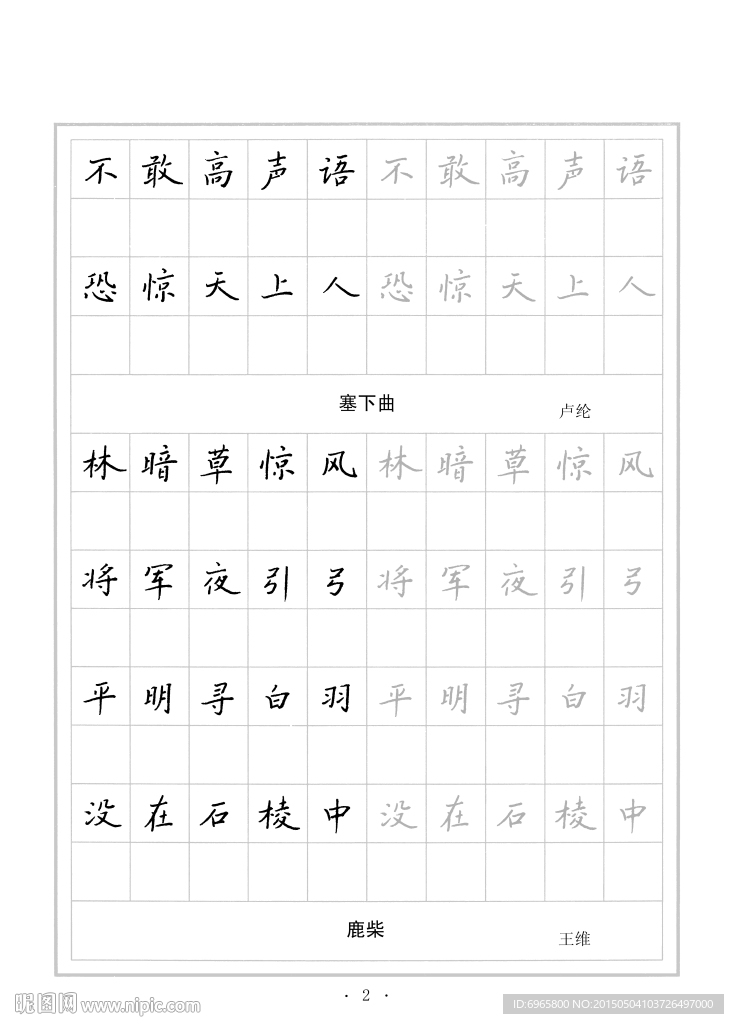 不敢高声语不敢高声语
恐惊天上人恐惊天上人
塞下曲 卢纶
林暗草惊风林暗草惊风
将军夜引弓将军夜引弓
平明寻白羽平明寻白羽
没在石棱中没在石棱中
鹿柴 王维
· 2 ·
昵图网 www.nipic.com
ID:6965800 NO:20150504103726497000